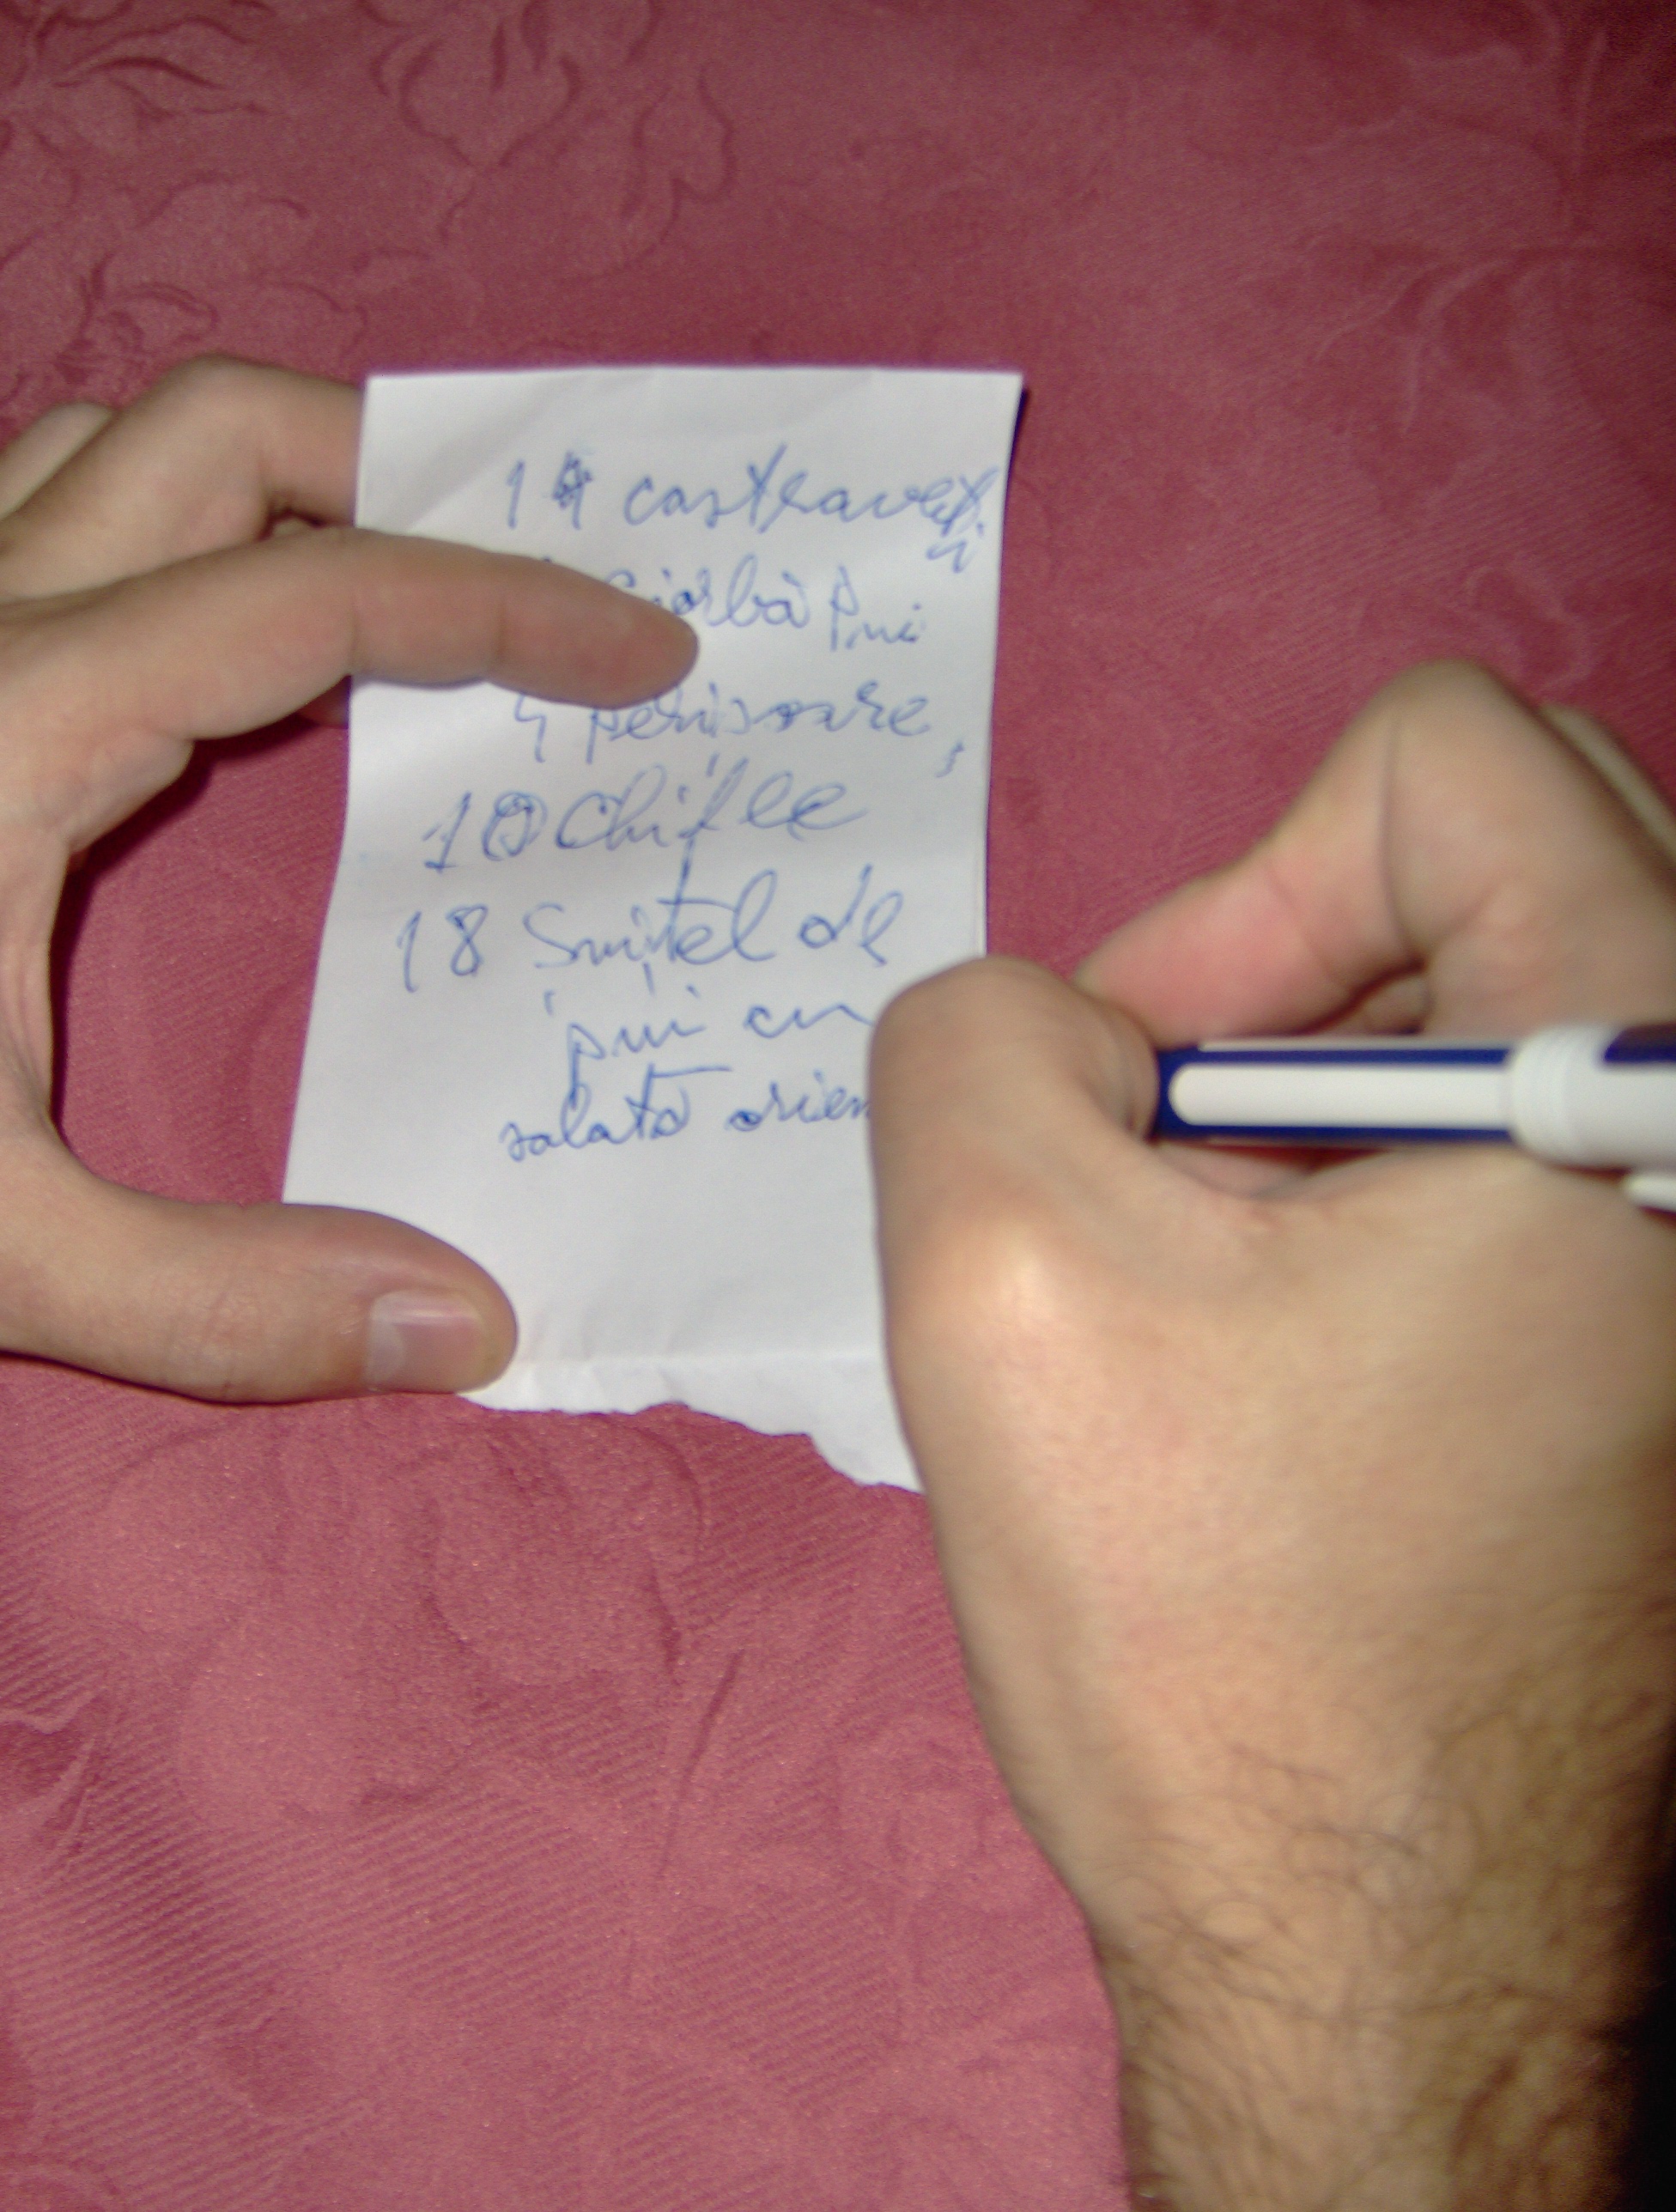 14 castraveți
ciorbă Pui
4 perișoare
10 Chifle
18 Șnițel de
pui cu
salată orien